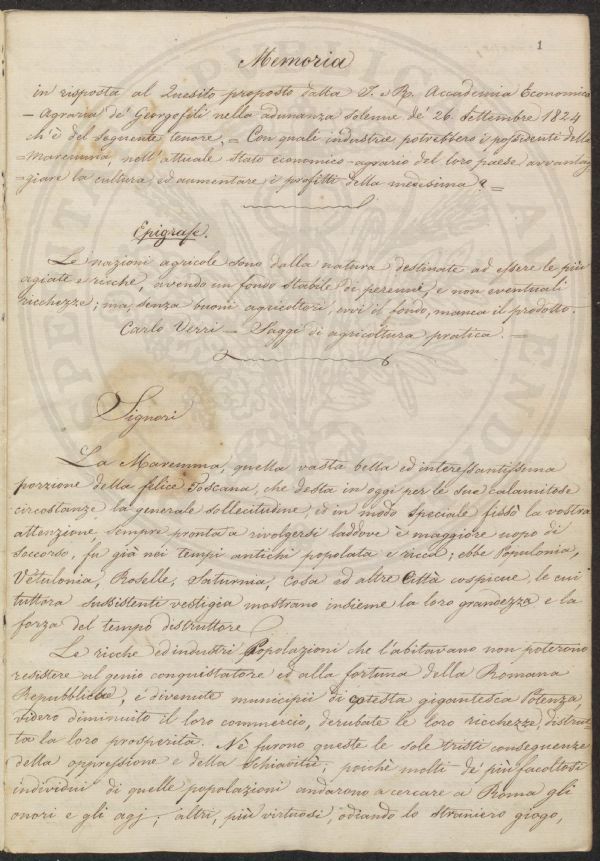 1
Memoria
in risposta al Quesito proposto dalla I. e R. Accademia Economico
- Agraria de' Georgofili nella adunanza solenne de' 26. Settembre 1824
ch'è del seguente tenore, = Con quali industrie potrebbero i possidenti della
Maremma, nell'attuale stato economico-agrario del loro paese avvantag=
=giare la cultura, ed aumentare i profitti della medesima? =
Epigrafe.
Le nazioni agricole sono dalla natura destinate ad essere le più
agiate e ricche, avendo un fondo stabile di perenni, e non eventuali
ricchezze; ma, senza buoni agricoltori, evvi il fondo, manca il prodotto.
Carlo Verri - Saggi di agricoltura pratica. -
Signori
La Maremma, quella vasta bella ed interessantissima
porzione della felice Toscana, che desta in oggi per le sue calamitose
circostanze la generale sollecitudine, ed in modo speciale fissò la vostra
attenzione, sempre pronta a rivolgersi laddove è maggiore uopo di
soccorso, fu già nei tempi antichi popolata e ricca; ebbe Populonia,
Vetulonia, Roselle, Saturnia, Cosa ed altre Città cospicue, le cui
tuttora sussistenti vestigia mostrano insieme la loro grandezza e la
forza del tempo distruttore.
Le ricche ed industri Popolazioni che l'abitavano non poterono
resistere al genio conquistatore ed alla fortuna della Romana
Repubblica, e divenute municipii di cotesta gigantesca Potenza,
videro diminuito il loro commercio, derubate le loro ricchezze, distrut=
ta la loro prosperità. Nè furono queste le sole tristi conseguenze
della oppressione e della schiavitù; poichè molti de' più facoltosi
individui di quelle popolazioni andarono a cercare a Roma gli
onori e gli agj; altri, più virtuosi, odiando lo straniero giogo,
SPERITA PUBLICAE